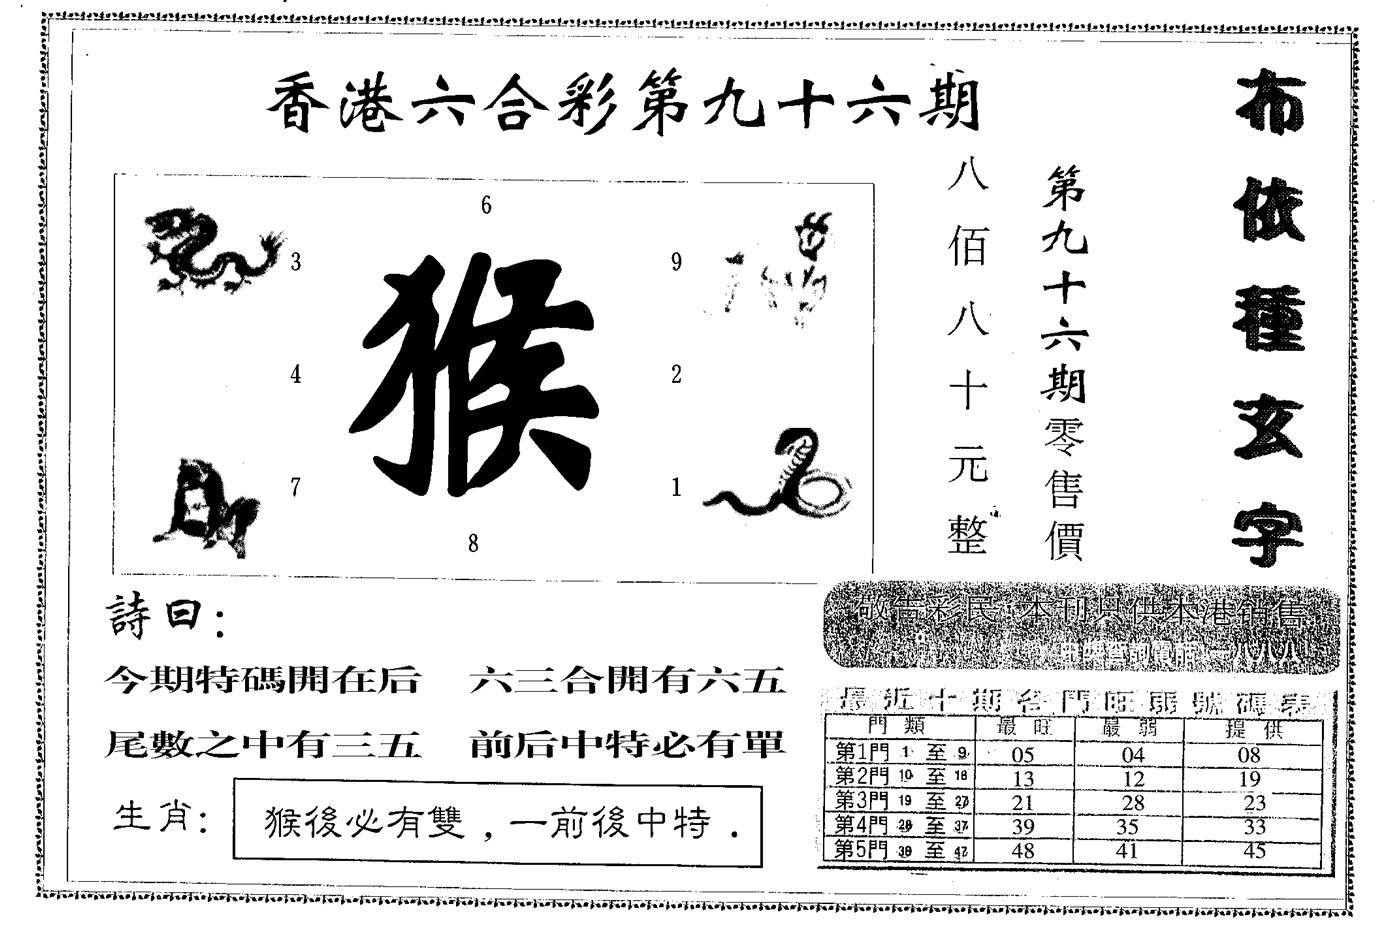 香港六合彩第九十六期
布依種玄字
第九十六期零售價
八佰八十元整
6
3
9
猴
4
2
7
1
8
詩曰：
今期特碼開在后 六三合開有六五
尾數之中有三五 前后中特必有單
生肖：
猴後必有雙，一前後中特．
敬告彩民 本刊只供本港销售
最近十期各門旺弱號碼表
門類 最旺 最弱 提供
第1門 1 至 9 05 04 08
第2門 10 至 18 13 12 19
第3門 19 至 27 21 28 23
第4門 28 至 37 39 35 33
第5門 38 至 47 48 41 45